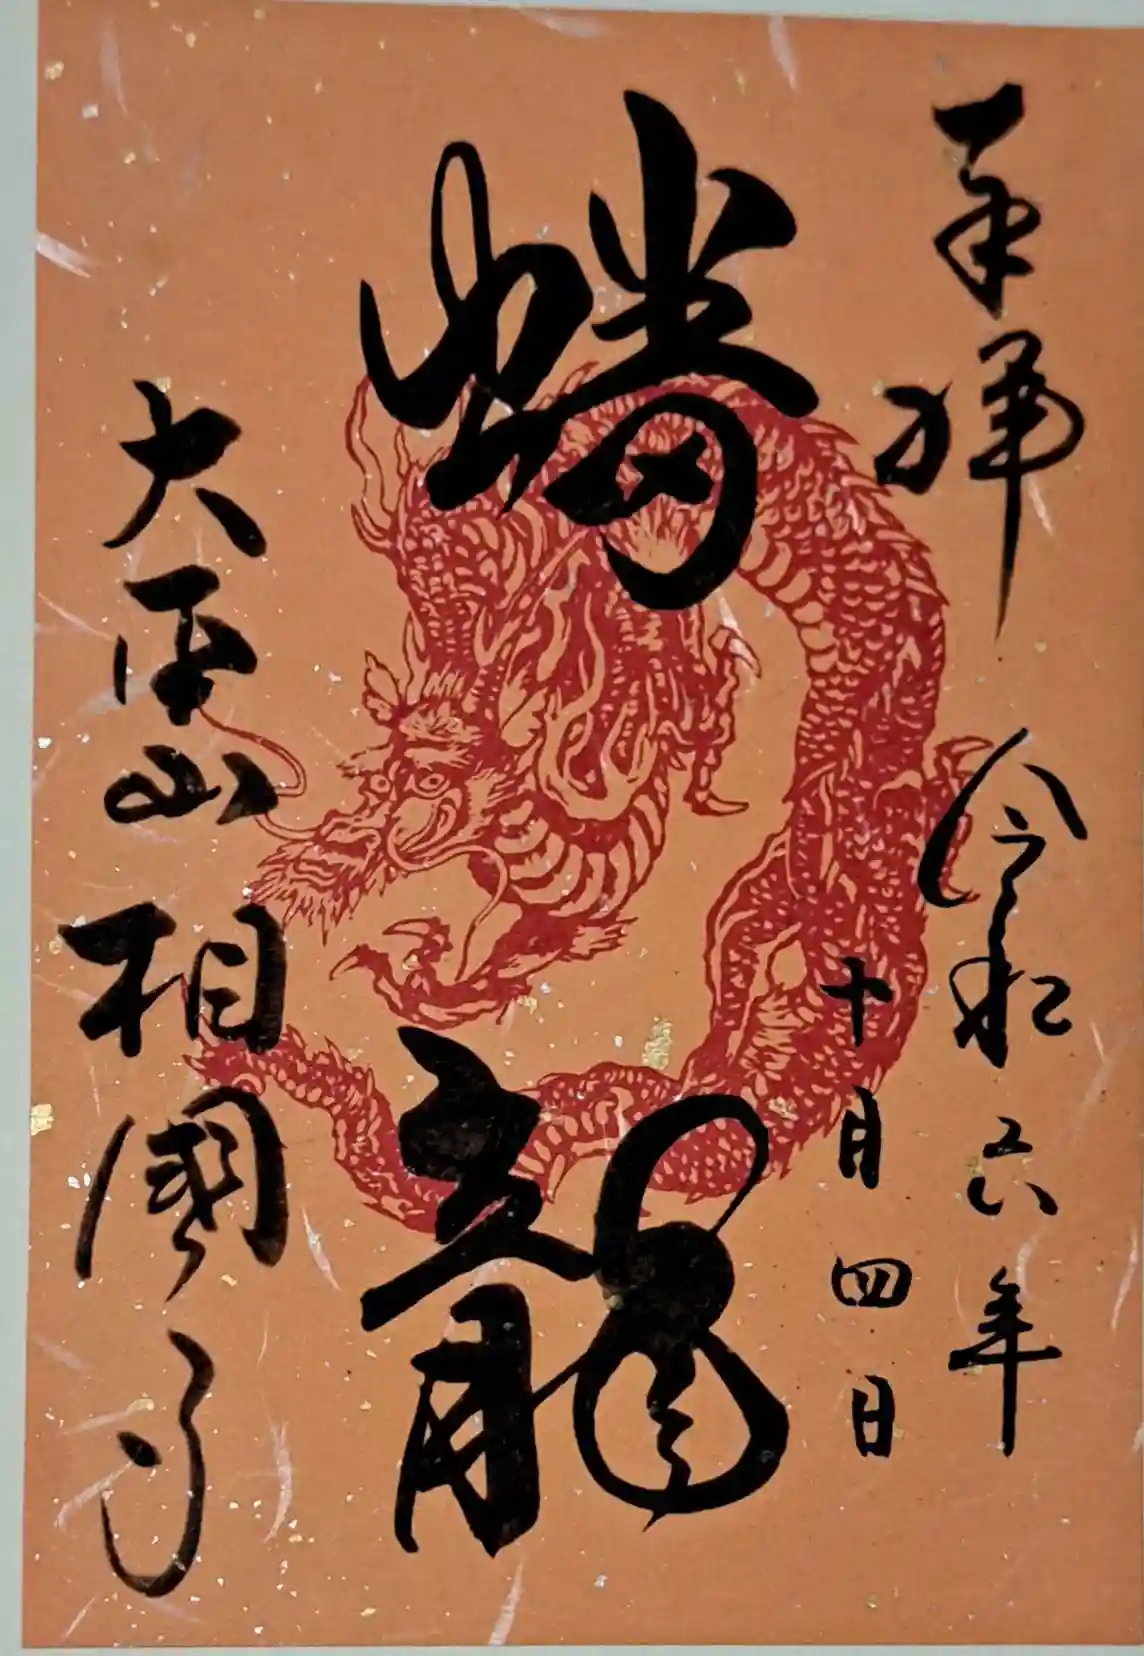 奉拝
令和六年
十月四日
蟠龍
大本山相國寺